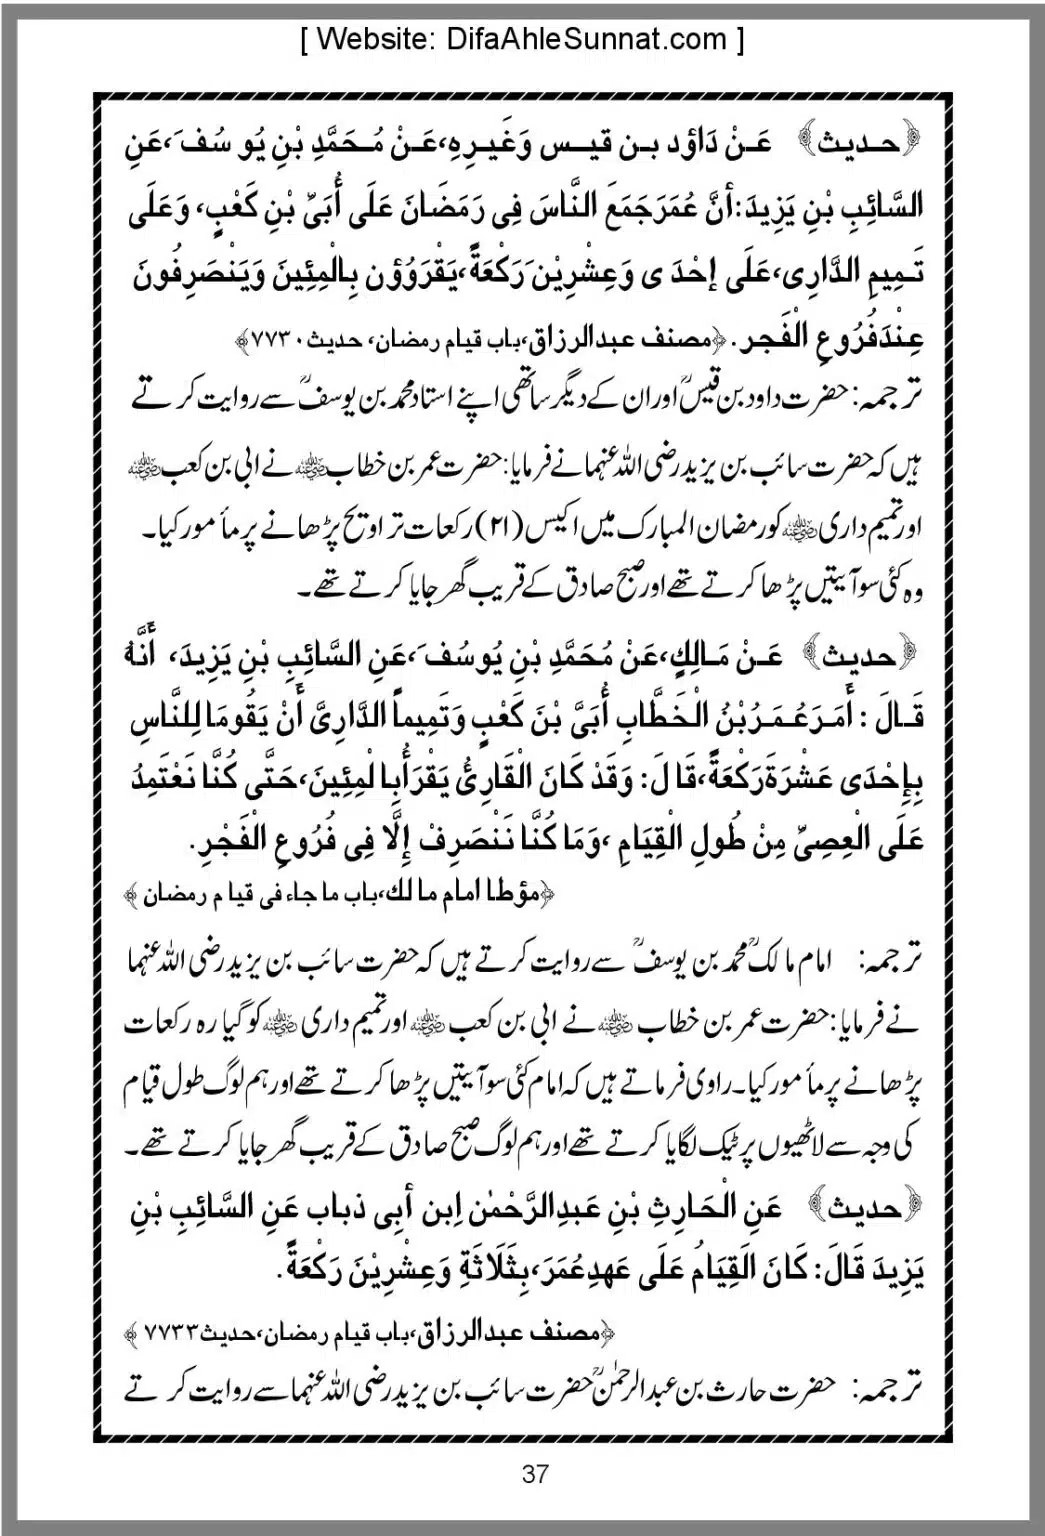 [ Website: DifaAhleSunnat.com ]
﴿حدیث﴾ عَنْ دَاؤد بن قیس وَغَیرِہِ،عَنْ مُحَمَّدِ بْنِ یُو سُفَ،عَنِ
السَّائِبِ بْنِ یَزِیدَ:أنَّ عُمَرَجَمَعَ النَّاسَ فِی رَمَضَانَ عَلَی أُبَیِّ بْنِ کَعْبٍ، وَعَلَی
تَمِیمِ الدَّارِی،عَلَی إحْدَ ی وَعِشْرِیْنَ رَکْعَةً،یَقْرَوُؤن بِالْمِئِینَ وَیَنْصَرِفُونَ
عِنْدَفُرُوعِ الْفَجر.﴿مصنف عبدالرزاق،باب قیام رمضان، حدیث۷۷۳۰﴾
ترجمہ: حضرت داود بن قیسؒ اور ان کے دیگر ساتھی اپنے استاد محمد بن یوسفؒ سے روایت کرتے
ہیں کہ حضرت سائب بن یزید رضی اللہ عنہما نے فرمایا: حضرت عمر بن خطابؓ نے ابی بن کعبؓ
اور تمیم داریؓ کو رمضان المبارک میں اکیس (۲۱) رکعات تراویح پڑھانے پر مأمور کیا۔
وہ کئی سو آیتیں پڑھا کرتے تھے اور صبح صادق کے قریب گھر جایا کرتے تھے۔
﴿حدیث﴾ عَنْ مَالِكٍ،عَنْ مُحَمَّدِ بْنِ یُوسُفَ،عَنِ السَّائِبِ بْنِ یَزِیدَ، أَنَّهُ
قَالَ : أَمَرَعُمَرُبْنُ الْخَطَّابِ أُبَیَّ بْنَ کَعْبٍ وَتَمِیماً الدَّارِیَّ أَنْ یَقُومَا لِلنَّاسِ
بِإِحْدَی عَشْرَةَرَکْعَةً،قَا لَ: وَقَدْ کَانَ الْقَارِئُ یَقْرَأُبِا لْمِئِینَ،حَتَّی کُنَّا نَعْتَمِدُ
عَلَی الْعِصِیِّ مِنْ طُولِ الْقِیَامِ ،وَمَا کُنَّا نَنْصَرِفْ إِلَّا فِی فُرُوعِ الْفَجْرِ.
﴿مؤطا امام مالك،باب ما جاء فی قیا م رمضان ﴾
ترجمہ: امام مالکؒ محمد بن یوسفؒ سے روایت کرتے ہیں کہ حضرت سائب بن یزید رضی اللہ عنہما
نے فرمایا: حضرت عمر بن خطابؓ نے ابی بن کعبؓ اور تمیم داریؓ کو گیارہ رکعات
پڑھانے پر مأمور کیا۔ راوی فرماتے ہیں کہ امام کئی سو آیتیں پڑھا کرتے تھے اور ہم لوگ طول قیام
کی وجہ سے لاٹھیوں پر ٹیک لگایا کرتے تھے اور ہم لوگ صبح صادق کے قریب گھر جایا کرتے تھے۔
﴿حدیث﴾ عَنِ الْحَارِثِ بْنِ عَبدِالرَّحْمٰن اِبن أبِی ذباب عَنِ السَّائِبِ بْنِ
یَزِیدَ قَالَ: کَانَ الَقِیَامُ عَلَی عَهدِعُمَرَ،بِثَلَاثَةِ وَعِشْرِیْنَ رَکْعَةً.
﴿مصنف عبدالرزاق،باب قیام رمضان،حدیث۷۷۳۳ ﴾
ترجمہ: حضرت حارث بن عبدالرحمٰنؒ حضرت سائب بن یزید رضی اللہ عنہما سے روایت کرتے
37